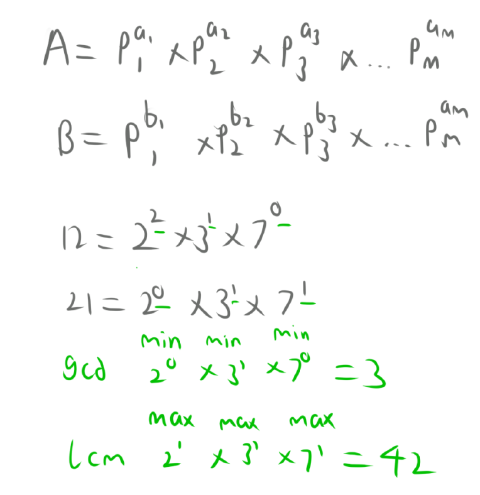 A = p₁^a₁ × p₂^a₂ × p₃^a₃ × ... pₘ^aₘ
B = p₁^b₁ × p₂^b₂ × p₃^b₃ × ... pₘ^aₘ
12 = 2² × 3¹ × 7⁰
21 = 2⁰ × 3¹ × 7¹
min min min
gcd 2⁰ × 3¹ × 7⁰ = 3
max max max
lcm 2¹ × 3¹ × 7¹ = 42